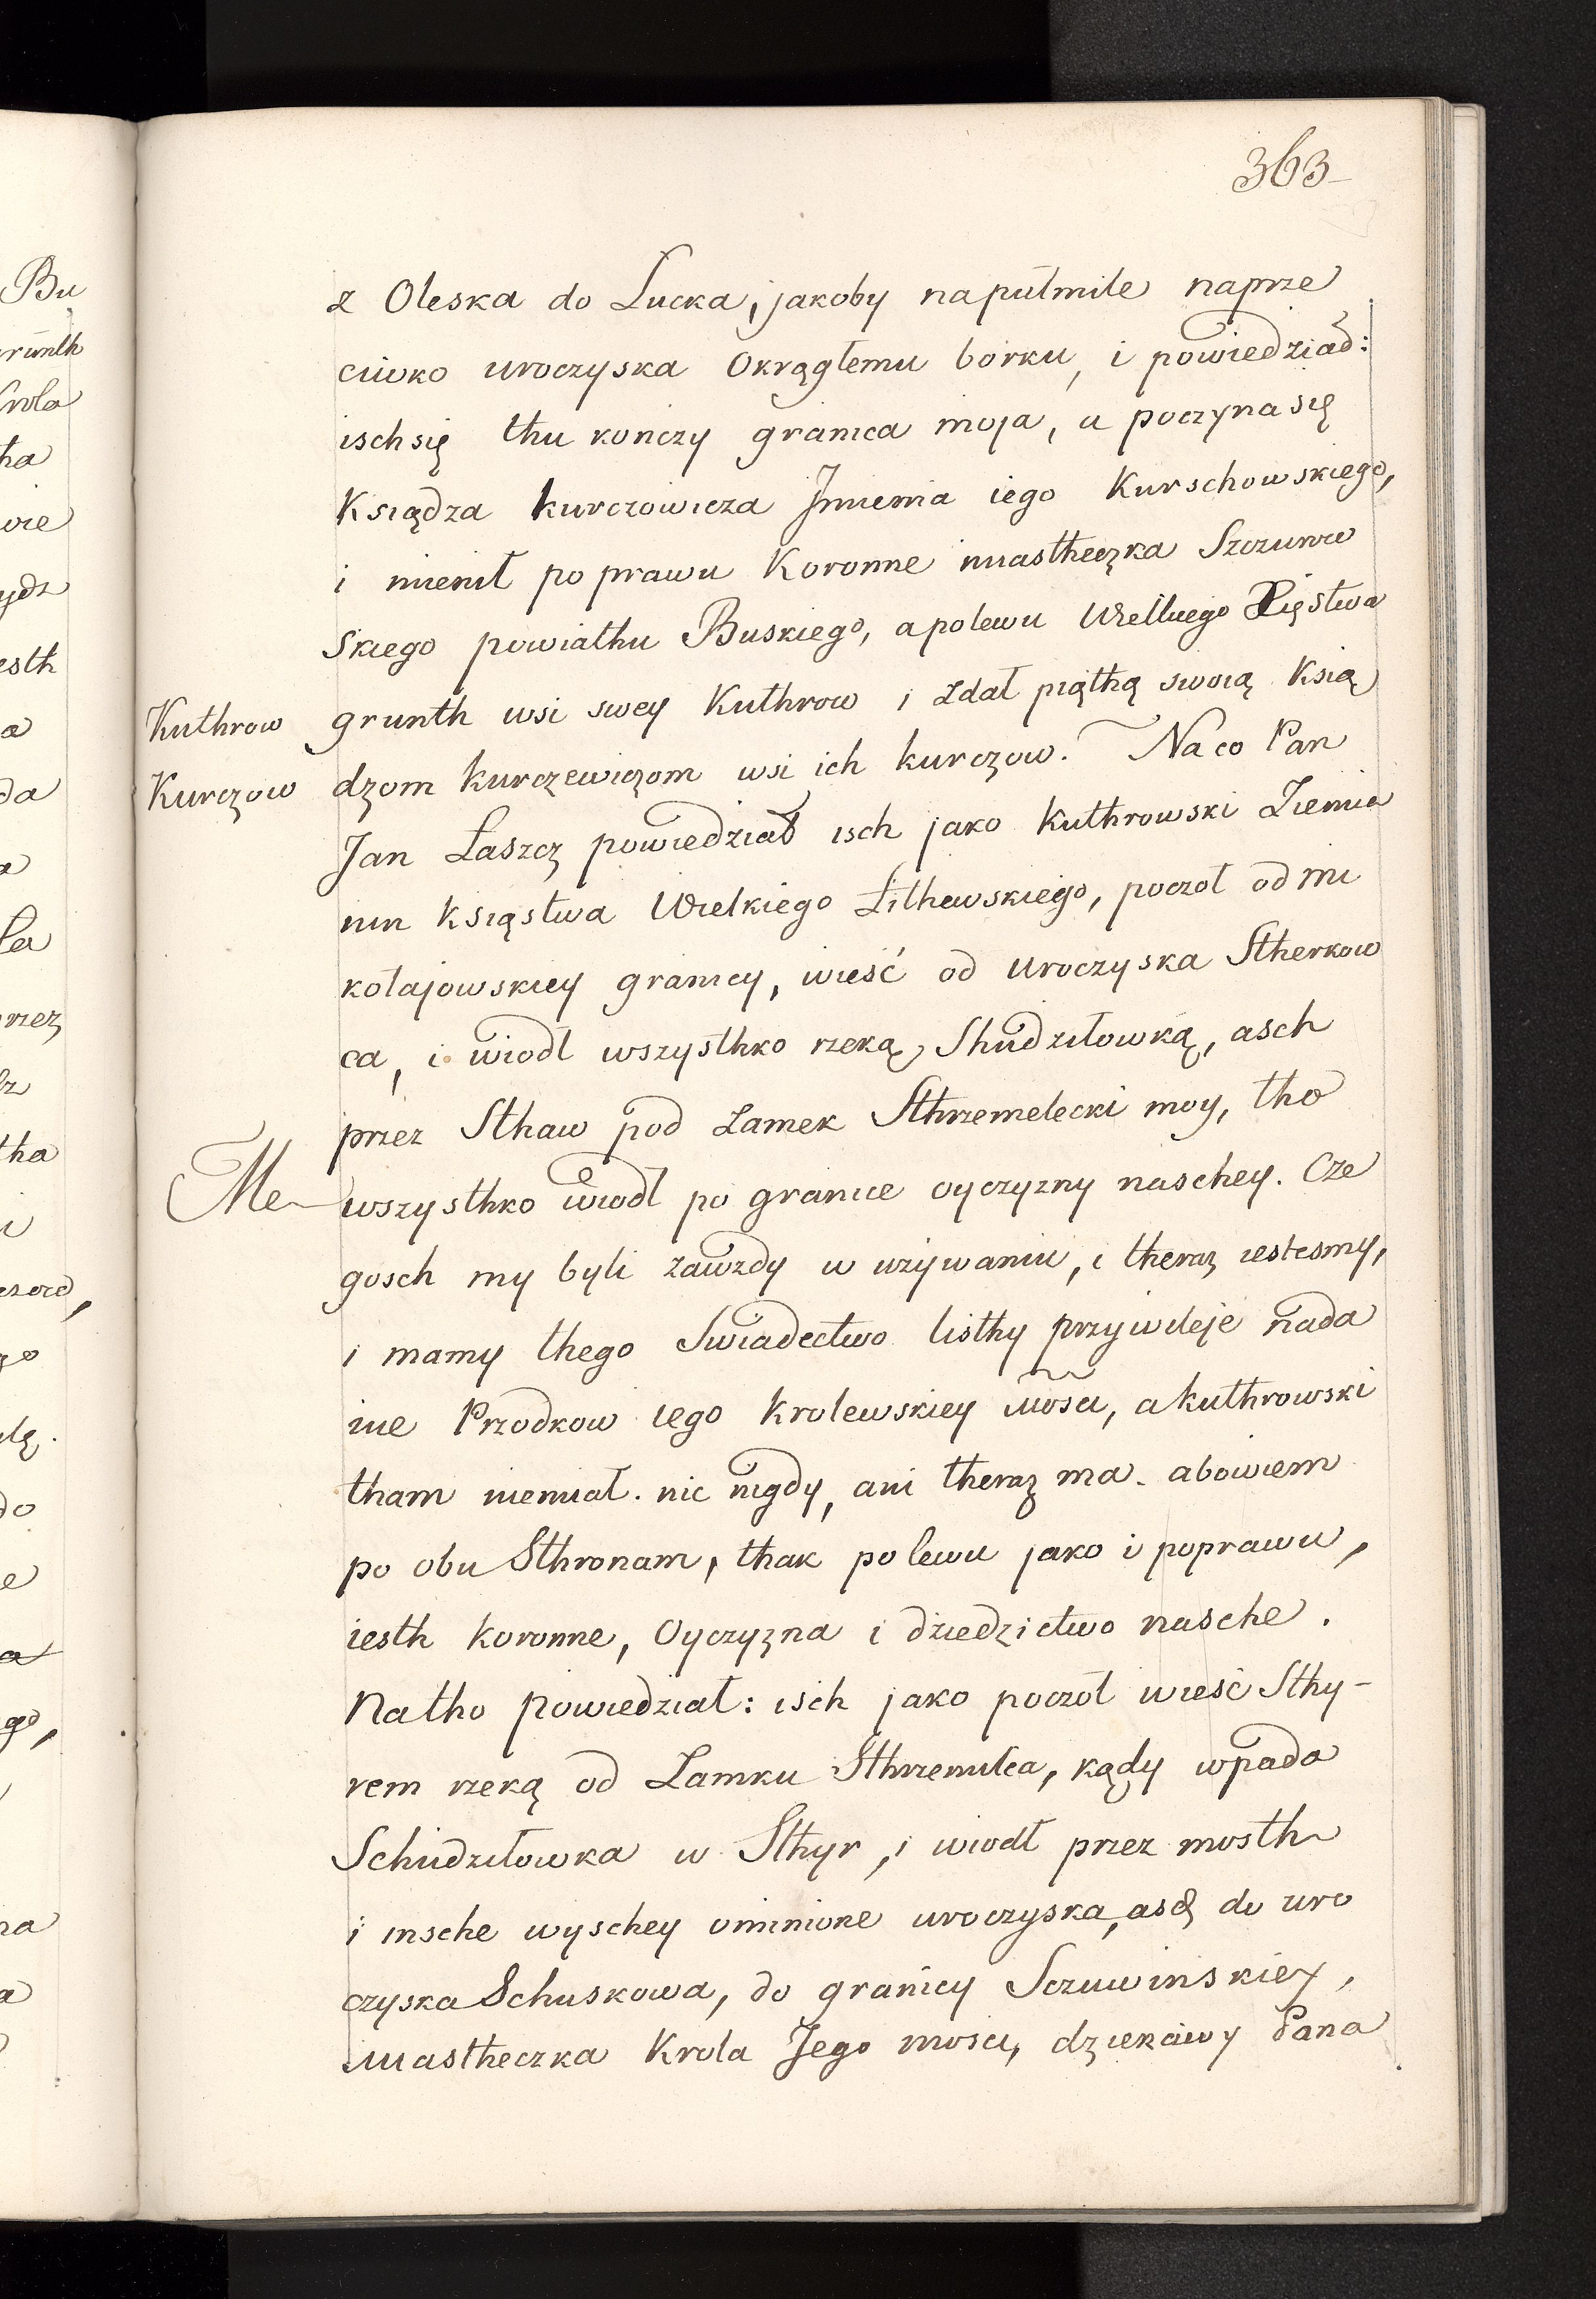 363
z Oleska do Łucka, jakoby napułmile naprze
ciwko uroczyska Okrągłemu borku, i powiedział:
isch się thu konczy granica moja, a poczyna się
Ksiądza kurczowicza Jmienia iego Kurschowskiego,
i mienił po prawu Koronne miastheczka Szczurwie
skiego powiathu Buskiego, a polewu Wielkiego Xięstwa
Kuthrow grunth wsi swey Kuthrow i zdał piąthą swoią Ksią
Kurczow dzom kurczewiczom wsi ich kurczow. Na co Pan
Jan Łaszcz powiedział isch jako Kuthrowski Ziemia
nin Ksiąstwa Wielkiego Lithewskiego, poczoł od mi
kołajowskiey granicy, wieść od uroczyska Stherkow
ca, i wiodł wszysthko rzeką Shudziłowką, asch
przez Sthaw pod Zamek Sthrzemelecki moy, tho
Me wszysthko wiodł po granice oyczyzny naschey. Cze
gosch my byli zawzdy w używaniu, i theraz iestesmy,
i mamy thego Swiadectwo listhy przywileje nada
ine Przodkow iego Krolewskiey mosci, a kuthrowski
tham niemiał nic nigdy, ani theraz ma. abowiem
po obu Sthronam, thak po lewu jako i poprawu,
iesth koronne, Oyczyzna i dziedzictwo nasche.
Natho powiedział: isch jako poczoł wieść Sthy-
rem rzeką od Zamku Sthrzemilca, kądy wpada
Schudziłowka w Sthyr, i wiodł przez mosth
i insche wyschey ominione uroczyska, asch do uro
czyska Schuskowa, do granicy Sczuwinskiey,
miastheczka Krola Jego mosci, dzierżawy Pana